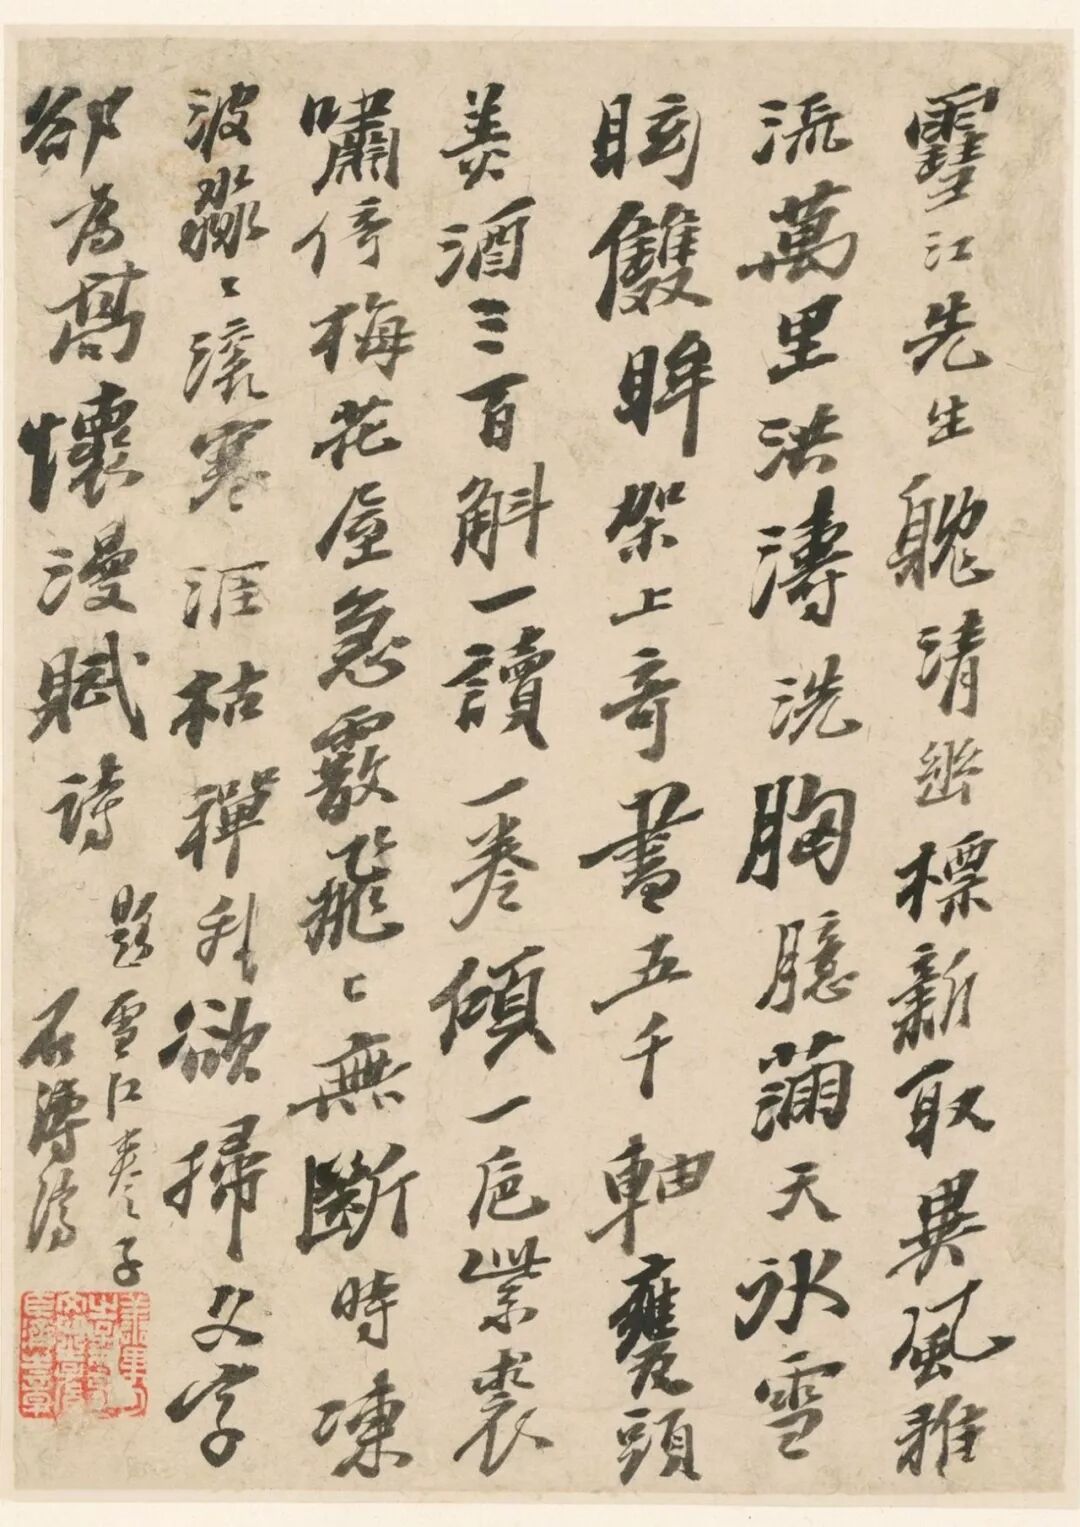 雪江先生貌清幽標新取異風雅
流萬里洪濤洗胸臆滿天冰雪
眩雙眸架上奇書五千軸甕頭
美酒三百斛一讀一卷傾一卮紫裘
嘯倚梅花屋急霰飛〻無斷時凍
波淼〻滾寒涯枯禪我欲掃文字
卻為高懷漫賦詩
題雪江卷子
石濤濟